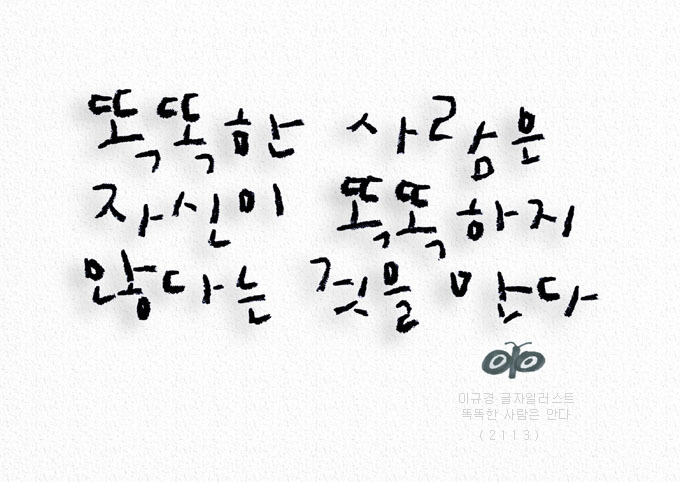 똑똑한 사람은
자신이 똑똑하지
않다는 것을 안다
이규경 글자일러스트
똑똑한 사람은 안다
(2113)